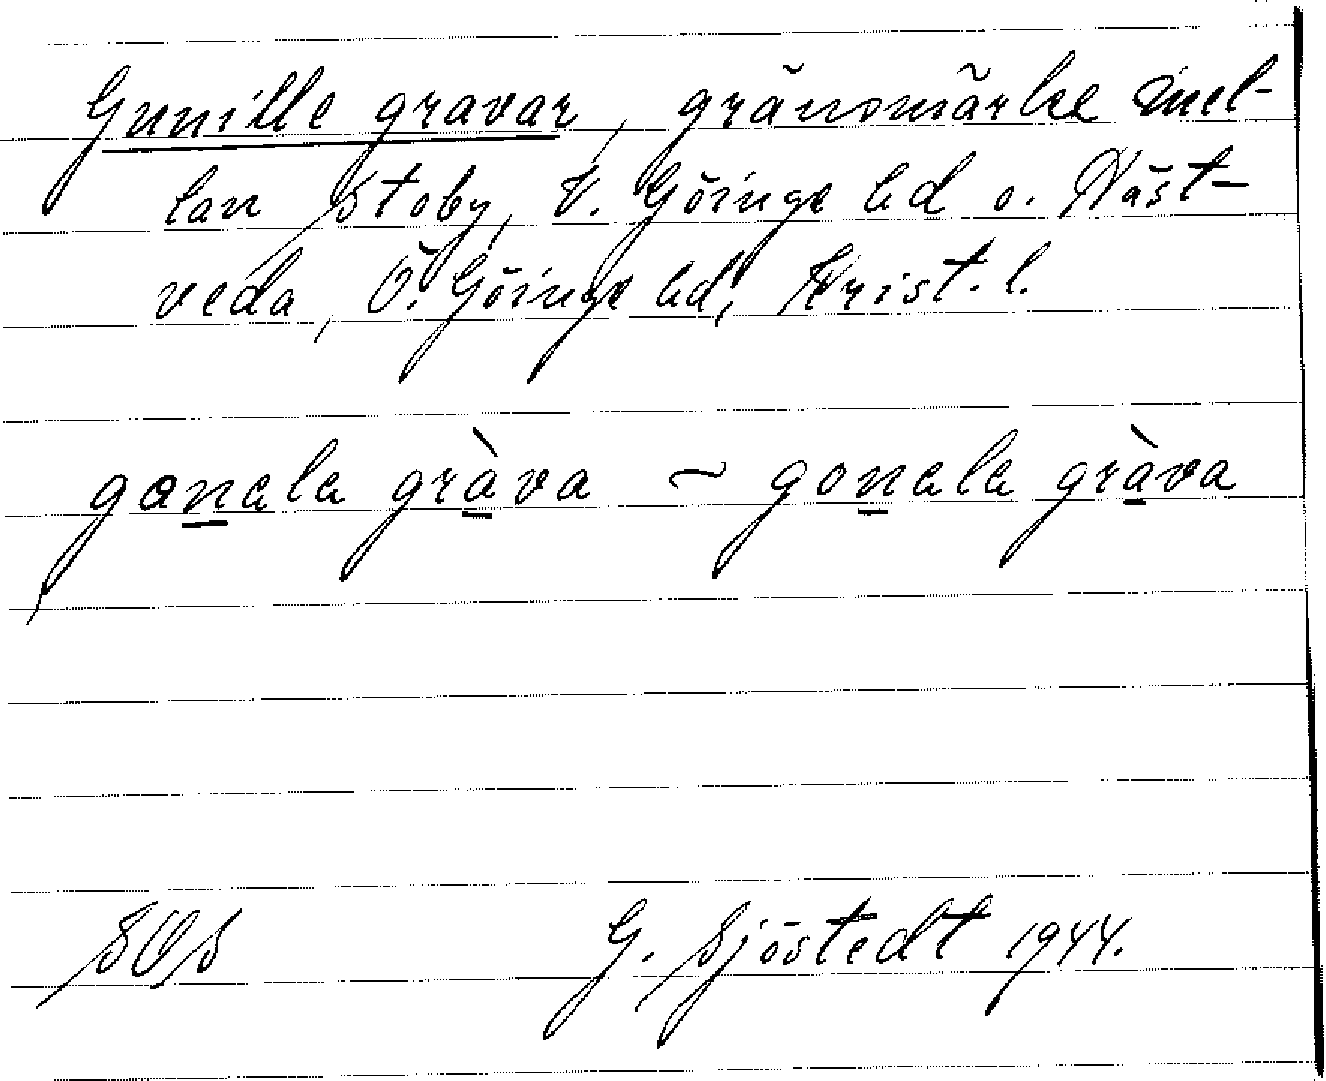 Gunille gravar, gränsmärke mel-
lan Stoby, V. Göinge hd o. Näst-
veda, Ö. Göinge hd, Krist. l.
gonala gràva ~ gonala gràva
SOS G. Sjöstedt 1944.